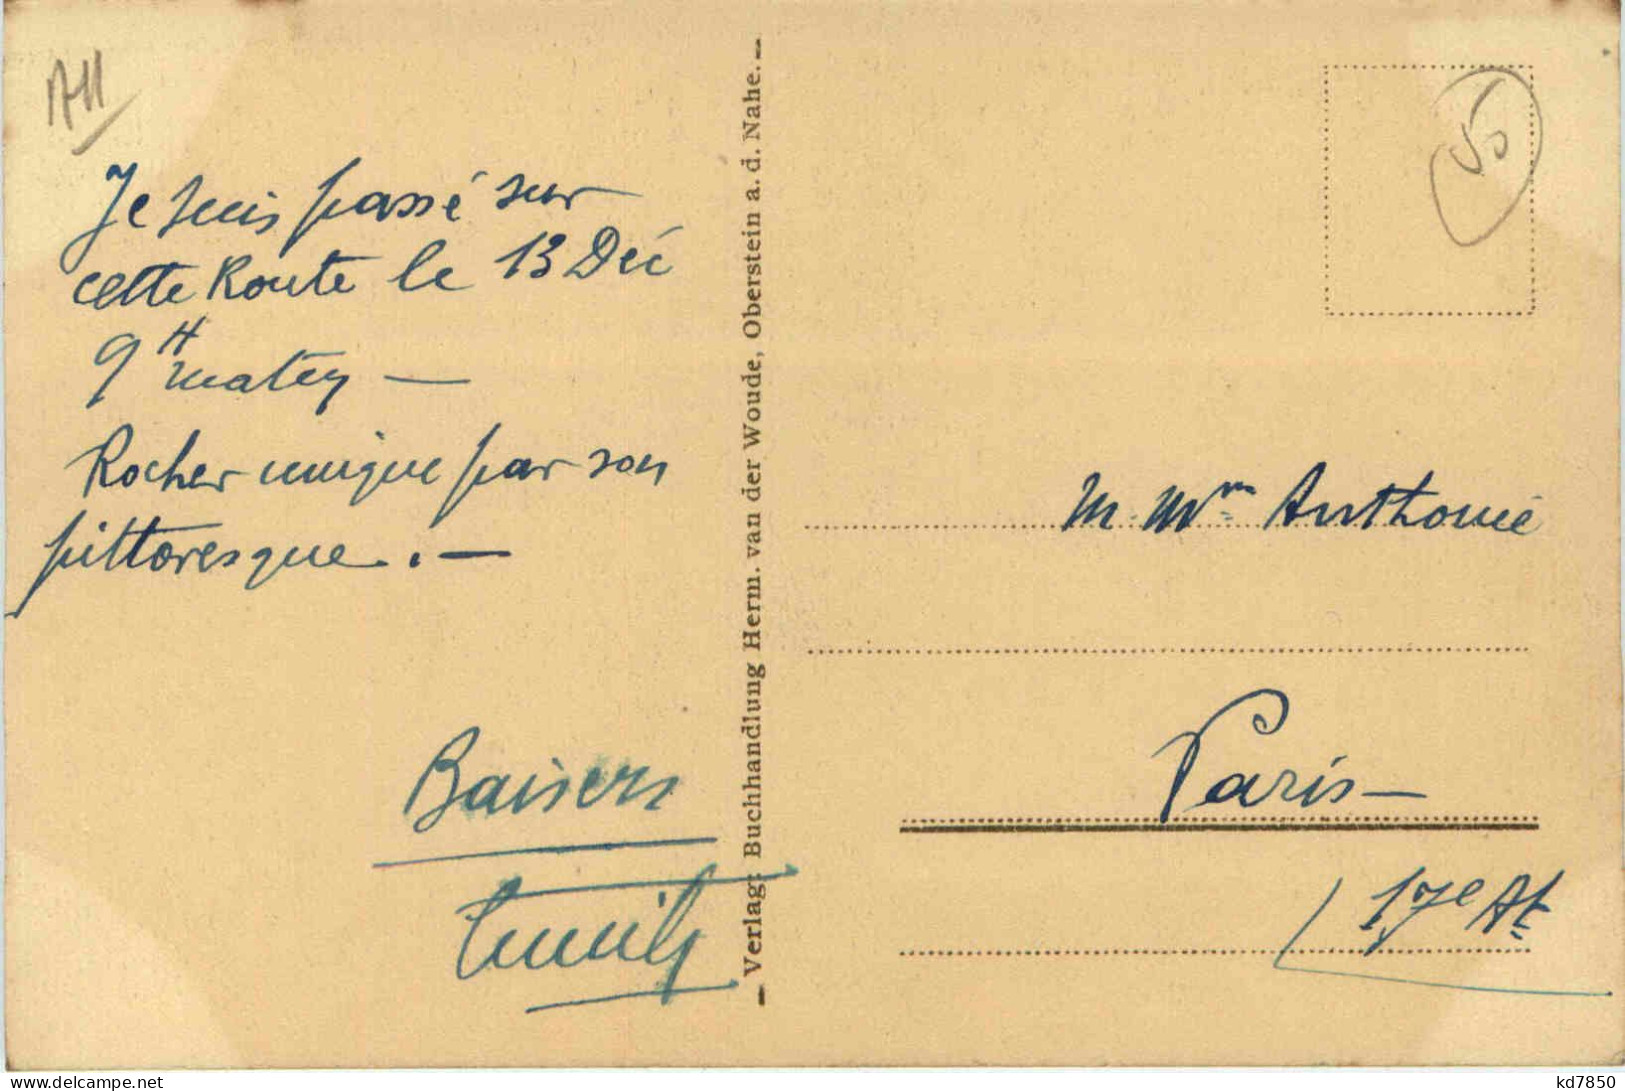 All
Je suis passé sur
cette Route le 13 Déc
9H matin —
Rocher unique par son
pittoresque. —
Baisers
— Verlag: Buchhandlung Herm. van der Woude, Oberstein a. d. Nahe. —
M. Mme
Paris —
17e At
delcampe.net
kd7850